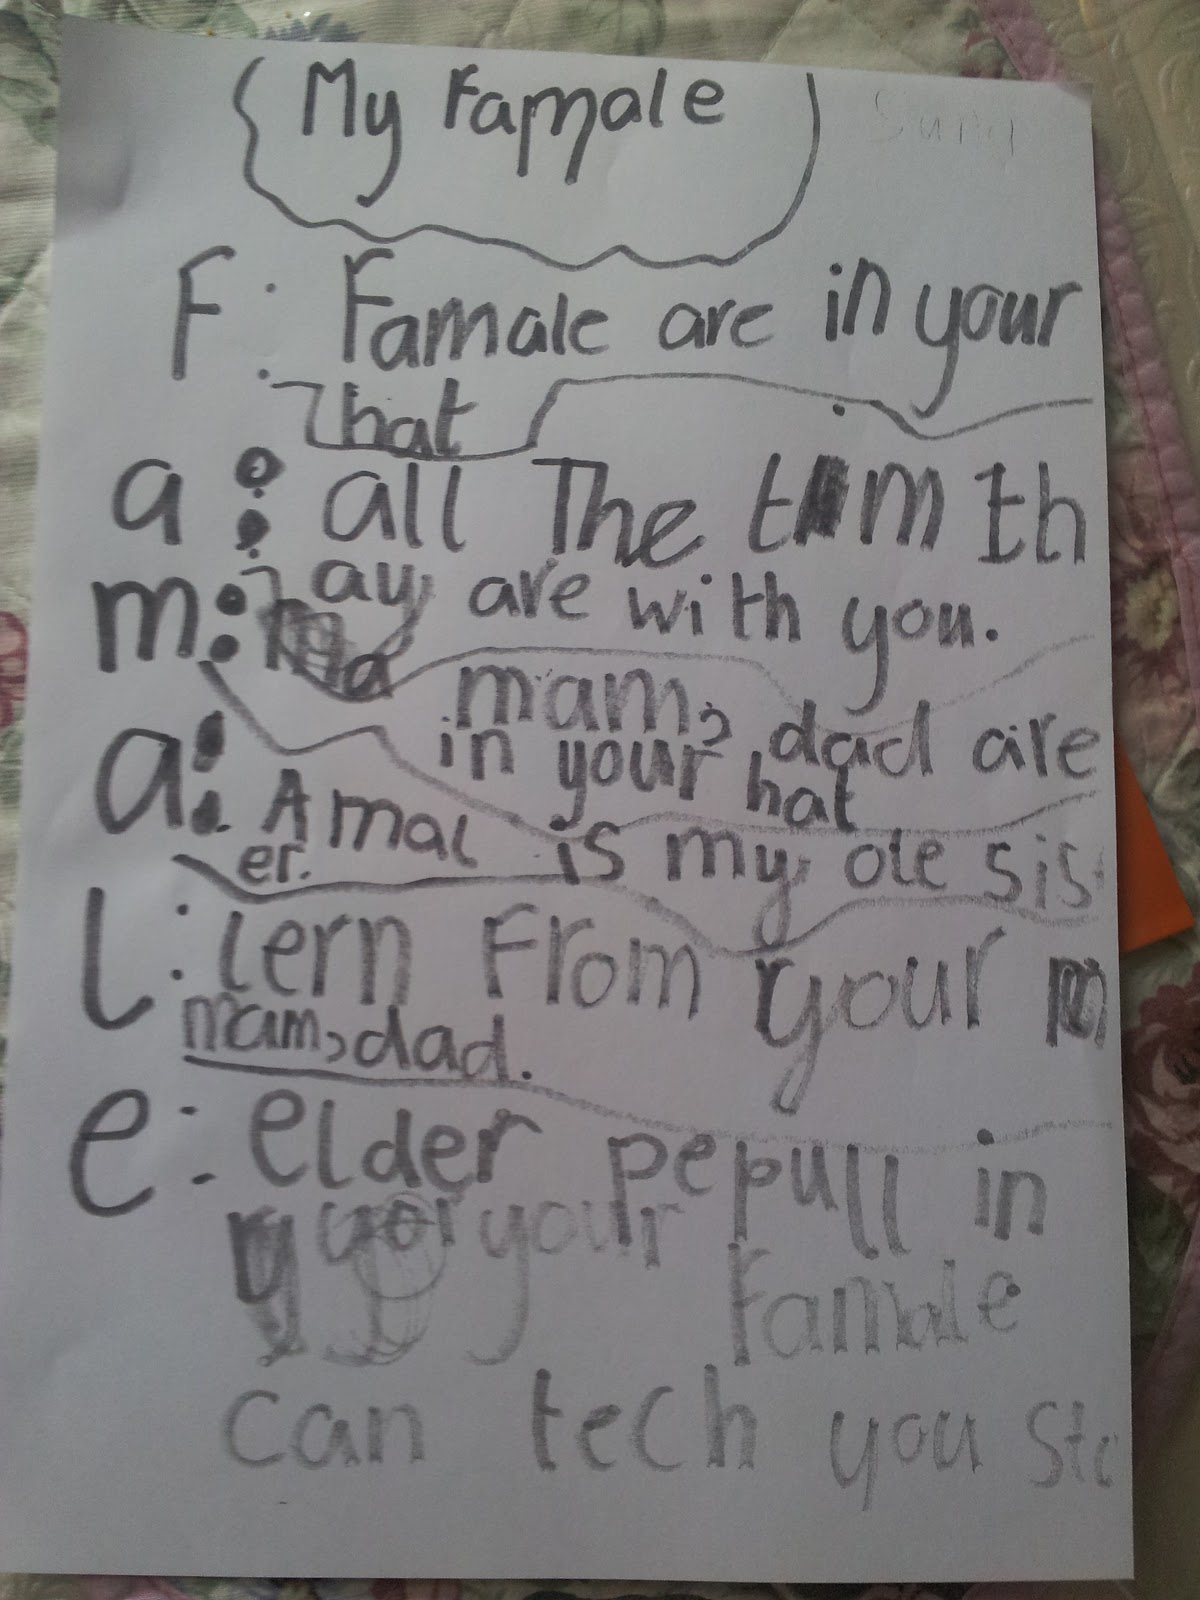 My Famale
F: Famale are in your
hat
a: all The tim th
ay are with you.
m: mam, dad are
in your hat
a: Amal is my ole sis
er.
l: lern From your
mam, dad.
e: elder pepull in
your Famale
can tech you